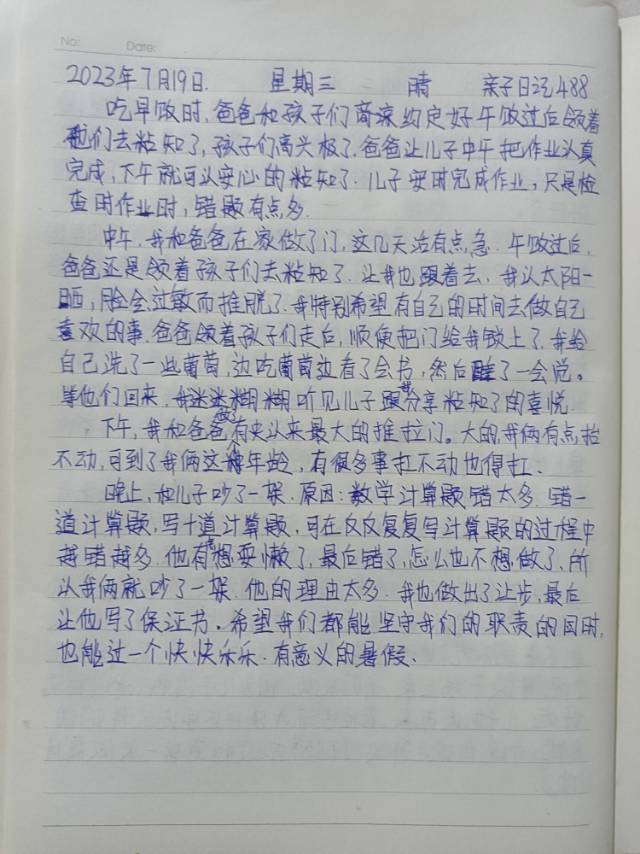 No:    Date:
2023年7月19日.    星期三    晴    亲子日记488
吃早饭时,爸爸和孩子们商量约定好午饭过后领着
他们去粘知了,孩子们高兴极了.爸爸让儿子中午把作业认真
完成,下午就可以安心的粘知了.儿子按时完成作业,只是检
查时作业时,错题有点多.
中午,我和爸爸在家做了门,这几天活有点急.午饭过后,
爸爸还是领着孩子们去粘知了.让我也跟着去,我以太阳一
晒,脸会过敏而推脱了.我特别希望有自己的时间去做自己
喜欢的事.爸爸领着孩子们走后,顺便把门给我锁上了.我给
自己洗了一些葡萄,边吃葡萄边看了会书,然后睡了一会觉。
等他们回来,我迷迷糊糊听见儿子跟我分享粘知了的喜悦.
下午,我和爸爸做了有史以来最大的推拉门。大的,我俩有点抬
不动,可到了我俩这个年龄,有很多事扛不动也得扛.
晚上,和儿子吵了一架.原因:数学计算题错太多.错一
道计算题,写十道计算题,可在反反复复写计算题的过程中
越错越多.他有想耍懒了,最后错了,怎么也不想做了,所
以我俩就吵了一架.他的理由太多.我也做出了让步,最后
让他写了保证书。希望我们都能坚守我们的职责的同时,
也能过一个快快乐乐.有意义的暑假.